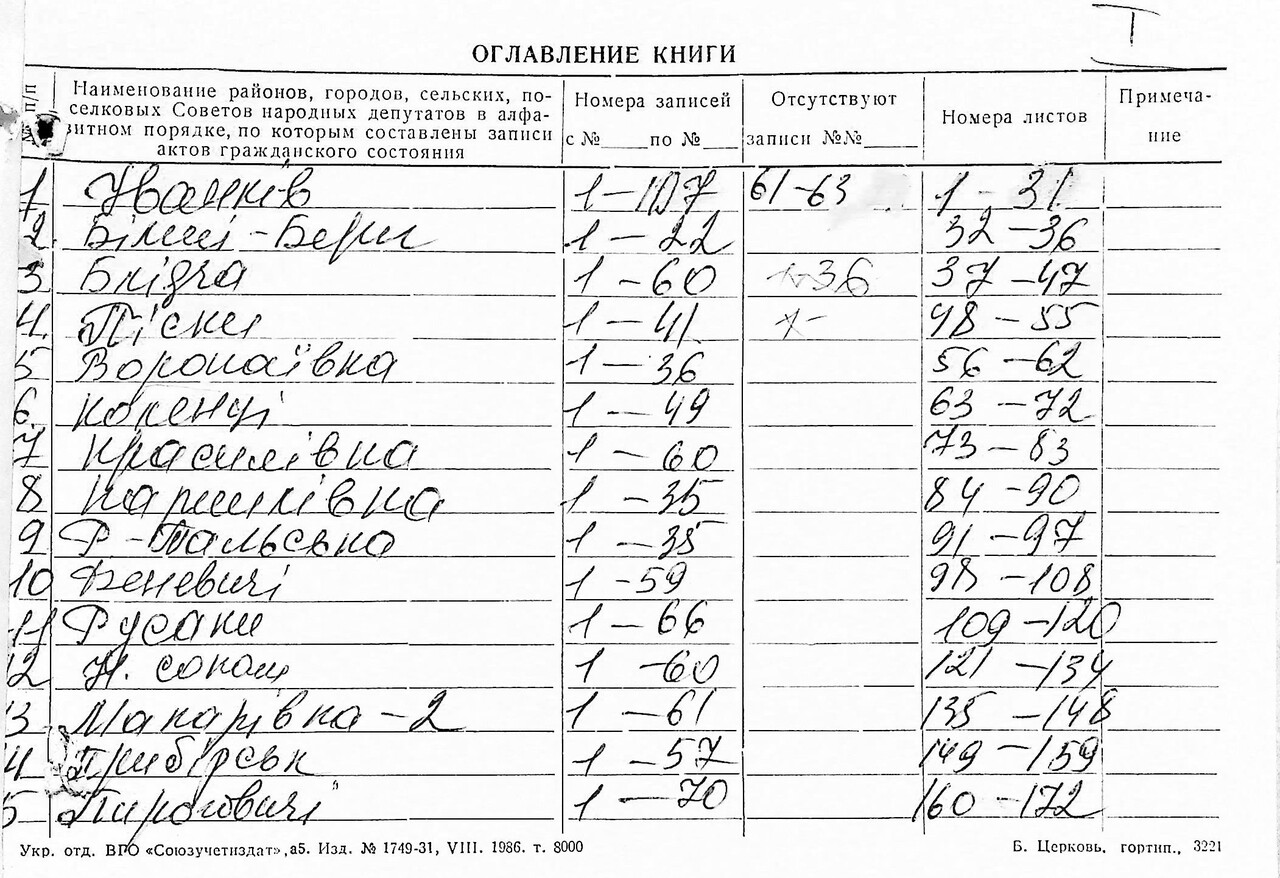 I
ОГЛАВЛЕНИЕ КНИГИ
№ п/п
Наименование районов, городов, сельских, по-
селковых Советов народных депутатов в алфа-
витном порядке, по которым составлены записи
актов гражданского состояния
Номера записей
с №____ по №____
Отсутствуют
записи №№____
Номера листов
Примеча-
ние
1 Іванків 1 – 107 61-63 1 - 31
2 1 – 22 32 – 36
3 Блідча 1 – 60 36 37 – 47
4 Піски 1 – 41 48 – 55
5 Воропаївка 1 – 36 56 – 62
6 Коленці 1 – 49 63 – 72
7 Красилівка 1 – 60 73 – 83
8 1 – 35 84 – 90
9 Р-Тальська 1 – 35 91 – 97
10 Феневичі 1 - 59 98 – 108
11 Русаки 1 – 66 109 – 120
12 Н. 1 - 60 121 – 134
13 Макарівка – 2 1 – 61 135 – 148
14 Прибірськ 1 – 57 149 – 159
15 Пироговичі 1 – 70 160 – 172
Укр. отд. ВГО «Союзучетиздат», а5. Изд. № 1749-31, VIII. 1986. т. 8000
Б. Церковь, гортип., 3221